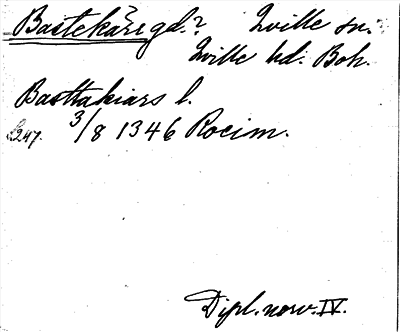 Bastekärr gd.? Tville sn.
Tville hd. Boh.
Basttakiars l.
3/8 1346 Rocim.
Dipl. norv. IV.